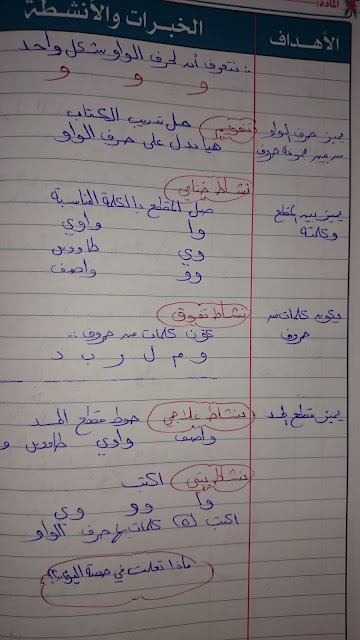 المادة:
الأهداف
الخبرات والأنشطة
نتعرف أن لحرف الواو شكل واحد
و و و
يميز حرف الواو
من بين مجموعة حروف
تقويم: حل تدريب الكتاب
هيا ندل على حرف الواو
نشاط ختامي
يميز بين المقطع
وكلمته
صل المقطع بالكلمة المناسبة
وا واوي
وي طاووس
وو واصف
يكون كلمات من
حروف
نشاط تفوق
كون كلمات من حروف:
و م ل ر ب د
يميز مقطع المد
نشاط علاجي حوط مقطع المد
واصف واوي طاووس و
نشاط بيتي اكتب
وا وو وي
اكتب (٥) كلمات بها حرف الواو
ماذا تعلمت في حصة اليوم؟؟